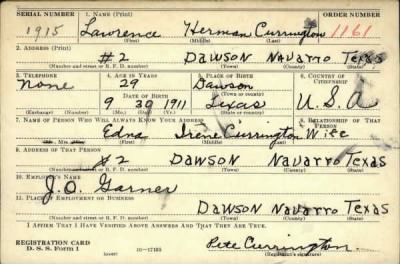 SERIAL NUMBER 1. NAME (Print) ORDER NUMBER
1915 Lawrence Herman Currington 1161
(First) (Middle) (Last)
2. ADDRESS (Print)
#2 DAWSON NAVARRO TEXAS
(Number and street or R. F. D. number) (Town) (County) (State)
3. TELEPHONE 4. AGE IN YEARS 5. PLACE OF BIRTH 6. COUNTRY OF CITIZENSHIP
None 29 Dawson
DATE OF BIRTH (Town or county)
9 30 1911 Texas U.S.A
(Exchange) (Number) (Mo.) (Day) (Yr.) (State or country)
7. NAME OF PERSON WHO WILL ALWAYS KNOW YOUR ADDRESS 8. RELATIONSHIP OF THAT PERSON
Edna Irene Currington Wife
(Mr., Mrs., Miss) (First) (Middle) (Last)
9. ADDRESS OF THAT PERSON
#2 DAWSON NAVARRO TEXAS
(Number and street or R. F. D. number) (Town) (County) (State)
10. EMPLOYER'S NAME
J.O. Garner
11. PLACE OF EMPLOYMENT OR BUSINESS
DAWSON NAVARRO TEXAS
(Number and street or R. F. D. number) (Town) (County) (State)
I AFFIRM THAT I HAVE VERIFIED ABOVE ANSWERS AND THAT THEY ARE TRUE.
REGISTRATION CARD
D. S. S. FORM 1 16—17105 Pete Currington.
(over) (Registrant's signature)